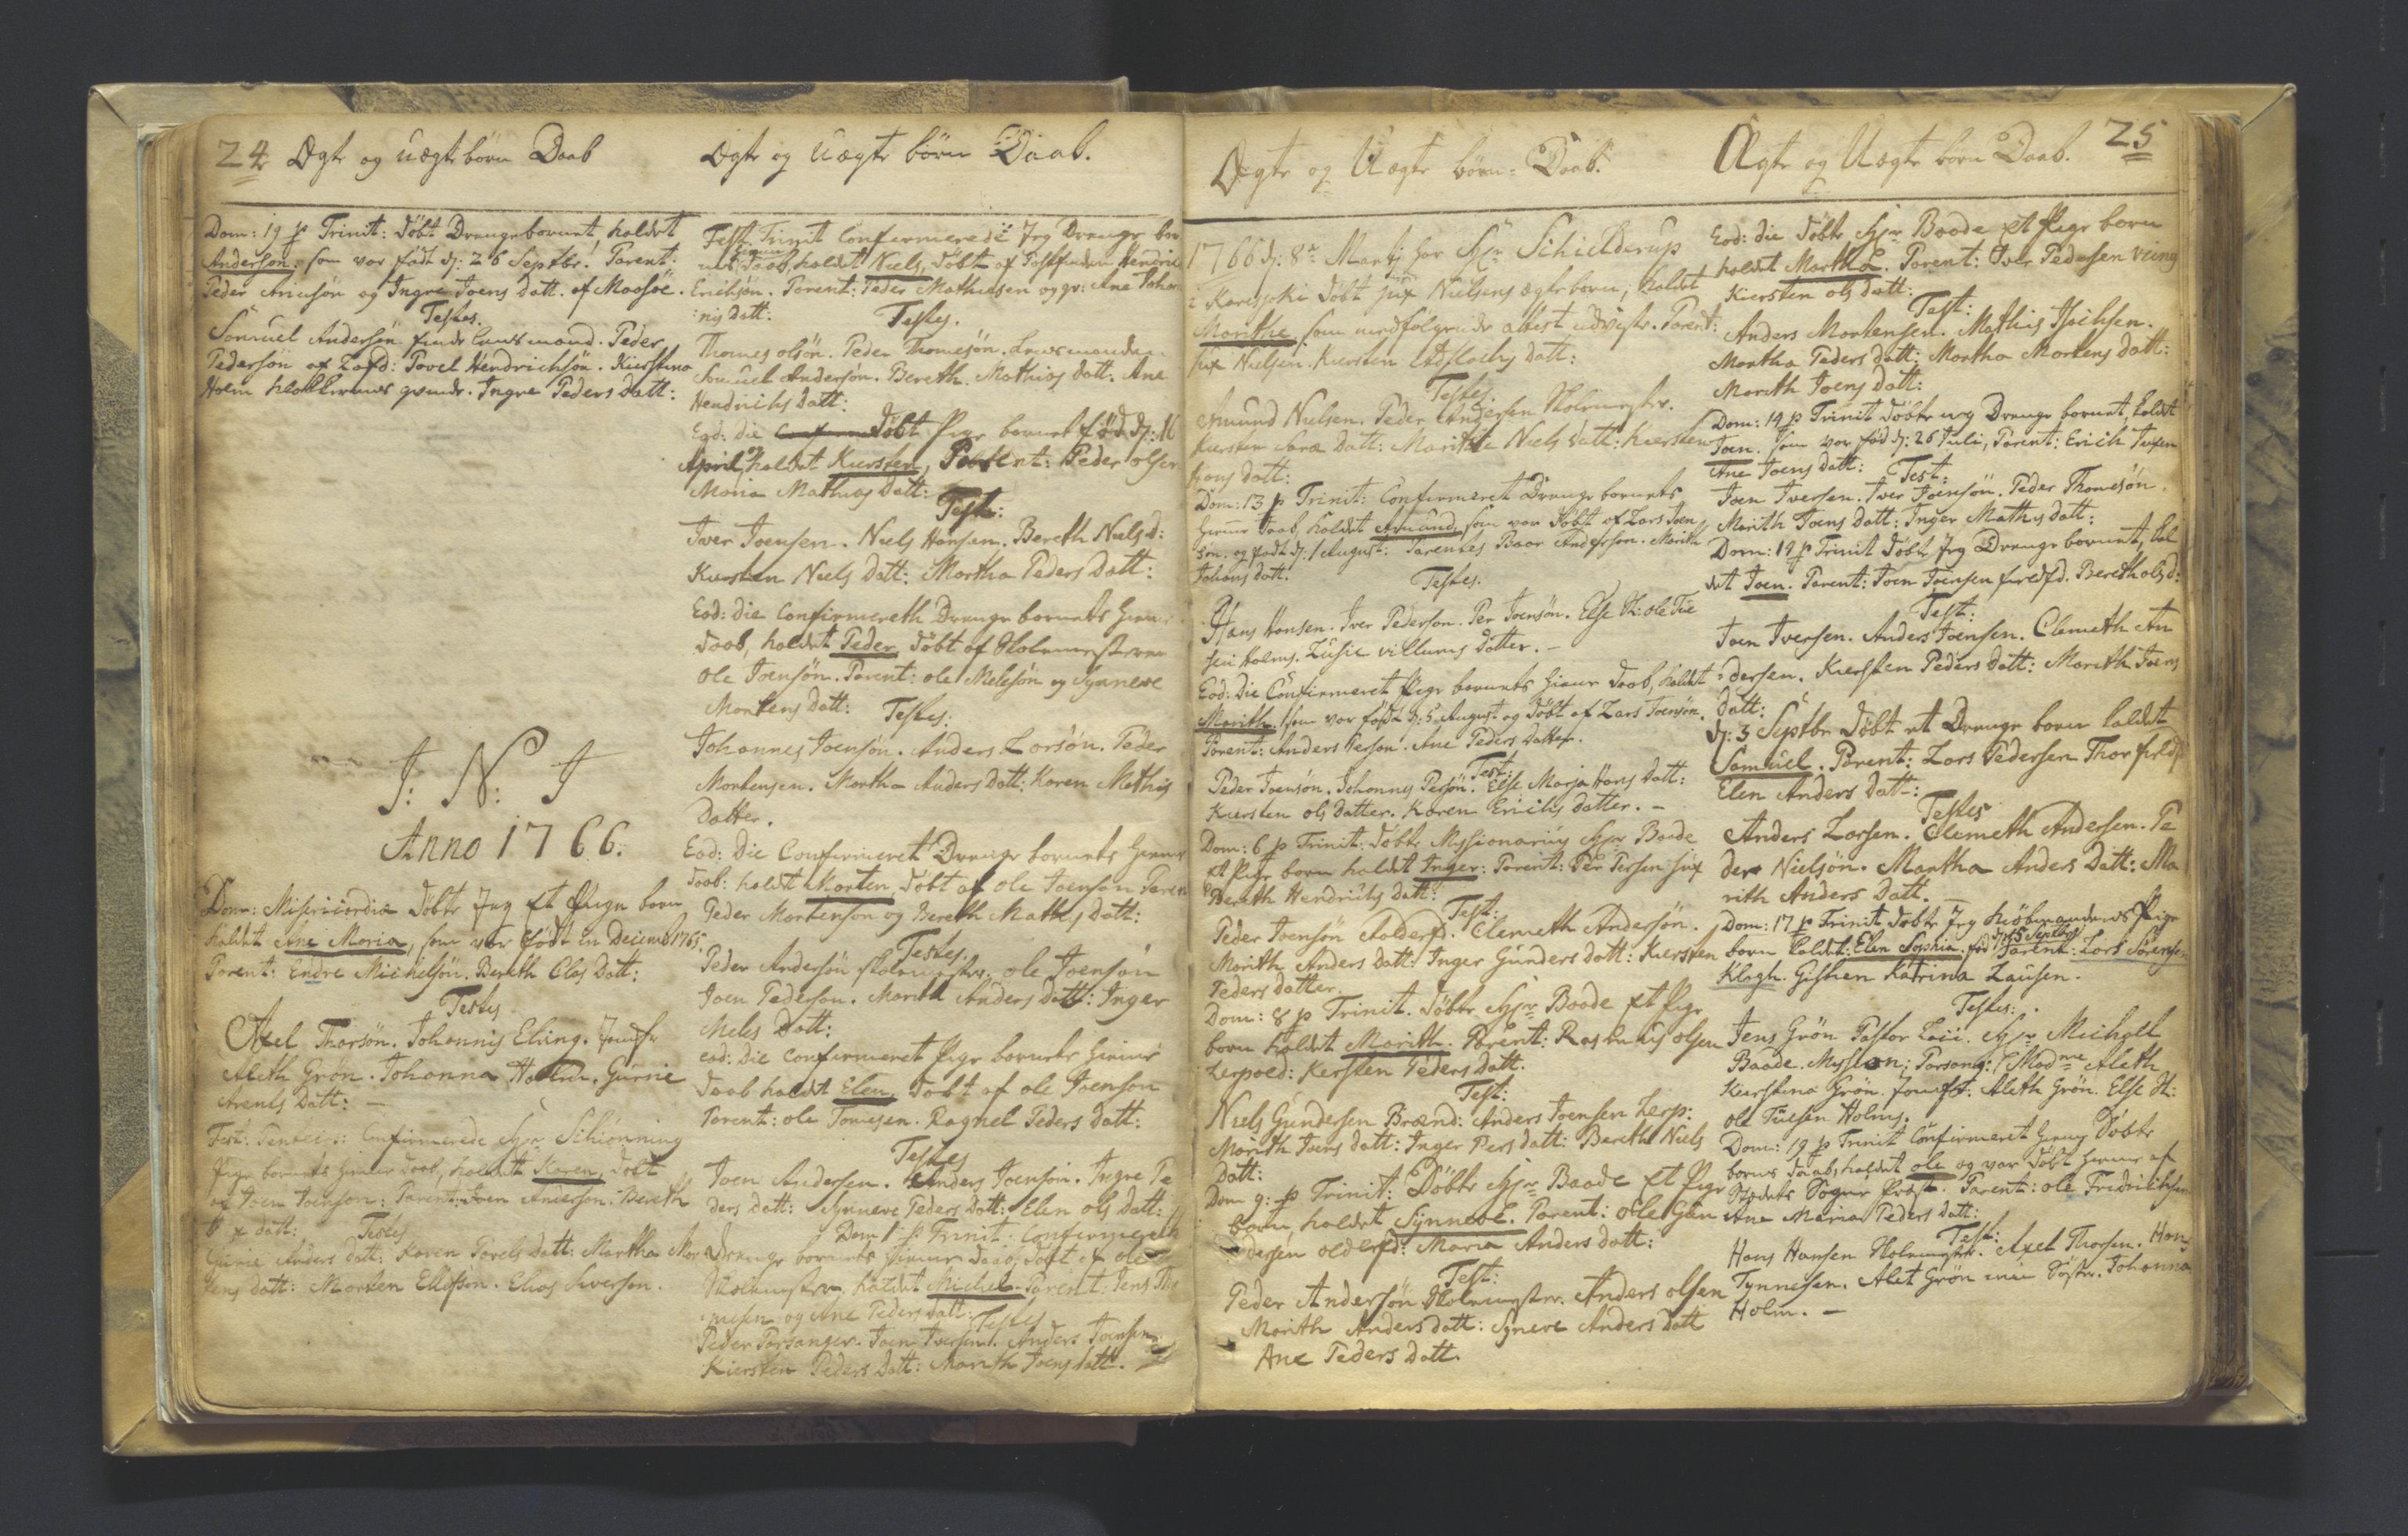 24 Ægte og uægte börn Daab
Dom: 19 p Trinit: döbt Drengebarnet, kaldet
Anderson, som var födt d: 26 Septbr: Parent:
Peder Aricksön og Ingre Joens datt. af Maasöe.
Testes.
Samuel Andersön finde Lensmand. Peder
Pedersön af Laxfd: Povel Hendrichsön. Kierstina
Holm Klokkerens qvinde. Ingre Peders datt:
J: N: J
Anno 1766.
Dom: Misericordia döbte Jeg Et Pige barn
kaldet Ane Maria, som var födt in Decemb 1765.
Parent: Endre Michelsön. Bereth Clas datt:
Testes
Axel Thorsön. Johannis Elring. Jomfr
Aleth Grön. Johanna Holm. Gurine
Arents datt: —
Fest: Pentec:: Confirmerede Hr Schiönning
Pige barnets hiemme daab, kaldet Karen, döbt
af Joen Joensen: Parent: Joen Andersen. Bereth
datt: Testes
Gurie Anders datt: Karen Povels datt: Martha Mor
tens datt: Morten Ellefsen. Elias Siverson.
Ægte og Uægte börn Daab.
Fest. Trinit Confirmerede Jeg Drenge bar
nets hiemme Daab, kaldet Niels, döbt af Postfinden Hendric
Erichsön. Parent: Peder Mathiesen og qv: Ane Johan
nis datt: Testes.
Thomes olsön. Peder Thomesön. Lensmanden
Samuel Andersön. Bereth Mathias datt. Ane
Hendrichs datt:
Eod: die döbt Pige barnet föd d: 16
April, kaldet Kiersten, Parent: Peder olsen
Maria Mathias datt:
Testes:
Iver Joensen. Niels Hansen. Bereth Niels d:
Kiersten Niels datt: Martha Peders datt:
Eod: die Confirmereth Drenge barnets hiem
daab, kaldet Peder, döbt af Skolemesteren
Ole Joensön. Parent: ole Nielsön og Synneve
Mortens datt: Testes:
Johannes Joensön. Anders Larsön. Peder
Mortensen. Martha Anders datt: Karen Mathis
datter.
Eod: die Confirmeret Drenge barnets hiemme
daab: kaldt Morten, döbt af ole Joenson Paren
Peder Mortenson og Bereth Mathis datt:
Testes.
Peder Andersön skolemester. ole Joensön
Joen Pederson. Marith Anders datt: Inger
Nieles datt:
eod: die confirmeret Pige barnets hiemme
daab kaldt Elen, döbt af ole Joenson
Parent: ole Tomesen. Ragnel Peders datt:
Testes
Joen Andersen. Anders Joensön. Ingre Pe
ders datt: Synneve Peders datt: Elen ols datt:
Dom 1 p Trinit: Confirmereth
Drenge barnets hiemme daab, döbt af ole
Skolemester, kaldet Michel. Parent: Jens Tho
mesen og Ane Peders datt: Testes
Peder Porsanger. Joen Iversen. Anders Joensen
Kiersten Peders datt: Marith Joens datt.
Ægte og Uægte börn=Daab.
1766 d: 8de Martij har Hr Schielderup
i Karesjoki döbt Juxe Nielsens ægtebarn, kaldet
Marithe, som medfölgende attest udviser. Parent:
Jux Nielsen. Kiersten Adslachs datt:
Testes.
Amund Nielsen. Peder Andersen Skolemester.
Kiersten Ara datt: Marithe Niels datt: Kiersten
Hans datt:
Dom: 13 p Trinit: Confirmeret Drenge barnets
hiemme daab, kaldet Amund, som var döbt af Lars Joen
sön. og födt d: 1 August: Parentes Baar Anderson. Marith
Johans datt.
Testes.
Hans Hansen. Iver Pederson. Per Joensön. Else H: ole Tue
sen Holms. Zusie villums datter. —
Eod: die Confirmeret Pige barnets hiemme daab, kaldet
Marith, som var född d: 5 August og döbt af Lars Joensön.
Parent: Anders Person. Ane Peders datter.
Test:
Peder Joensön. Johannes Persön. Else Marja Hans datt:
Kiersten ols datter. Karen Erichs datter. —
Dom: 6 p Trinit: döbte Missionarius Hr Baade
Et Pige barn kaldet Inger: Parent: Per Persen Jux
Bereth Hendrichs datt:
Test:
Peder Joensön Aalderfd. Clemeth Andersön.
Marith Anders datt: Inger Gunders datt: Kiersten
Peders datter.
Dom: 8 p Trinit. döbte Hr Baade Et Pige
barn kaldet Marith. Parent: Rasmus olsen
Lerpoed: Kersten Peders datt.
Test:
Niels Gundersen Brænd: Anders Joensen Lerp:
Marith Joens datt: Inger Pers datt: Bereth Niels
datt:
Dom 9: p Trinit: Döbte Hr Baade Et Pige
barn, kaldet Synneve. Parent: ole Gun
dersen olderfd: Maria Anders datt:
Test:
Peder Andersön Skolemester. Anders olsen
Marith Anders datt: Syneve Anders datt
Ane Peders datt.
Ægte og Uægte börn Daab. 25
Eod: die döbte Hr Baade Et Pige barn
kaldet Martha. Parent: Iver Pedersen
Kiersten ols datt:
Test:
Anders Mortensen. Mathis Isachsen.
Martha Peders datt: Martha Mortens datt:
Marith Joens datt:
Dom: 14 p Trinit döbte jeg Drenge barnet, kaldt
Joen. som var föd d: 26 Juli, Parent: Erich Juxsen
Ane Joens datt: Test:
Joen Iversen. Iver Joensön. Peder Thomesön.
Marith Joens datt: Inger Mathis datt:
Dom: 19 p Trinit döbte Jeg Drenge barnet, kal
det Joen. Parent: Joen Joensen Bereth ols d:
Test:
Joen Iversen. Anders Joensen. Clemeth An
dersen. Kiersten Peders datt: Marith Joens
datt:
d: 3 Septbr döbt et Drenge barn kaldet
Samuel. Parent: Lars Pedersen
Elen Anders datt:
Testes
Anders Larsen. Clemeth Andersen. Pe
der Nielsön. Martha Anders datt: Ma
rith Anders datt.
Dom: 17 p Trinit döbte Jeg Kiöbmandens Pige
barn kaldt: Elen Sophia. föd d: 15 Septbr Parent: Lars Sörensen
Klagh. Gishen Katrina Lausen.
Testes:.
Jens Grön Pastor Loci. Hr Michael
Baade. Mission: Porsang: Madme Aleth
Kierstina Grön. Jomfr: Aleth Grön. Else H:
ole Tuesen Holms.
Dom: 19 p Trinit Confirmeret hiemme Döbte
barns daab, kaldet ole og var döbt hiemme af
Stedets Sogne Præst. Parent: ole Fredrichsen
Ane Maria Peders datt:
Test:
Hans Hansen Skolemester. Axel Thorsen. Hans
Tynnesen. Alet Grön min Söster. Johanna
Holm. —